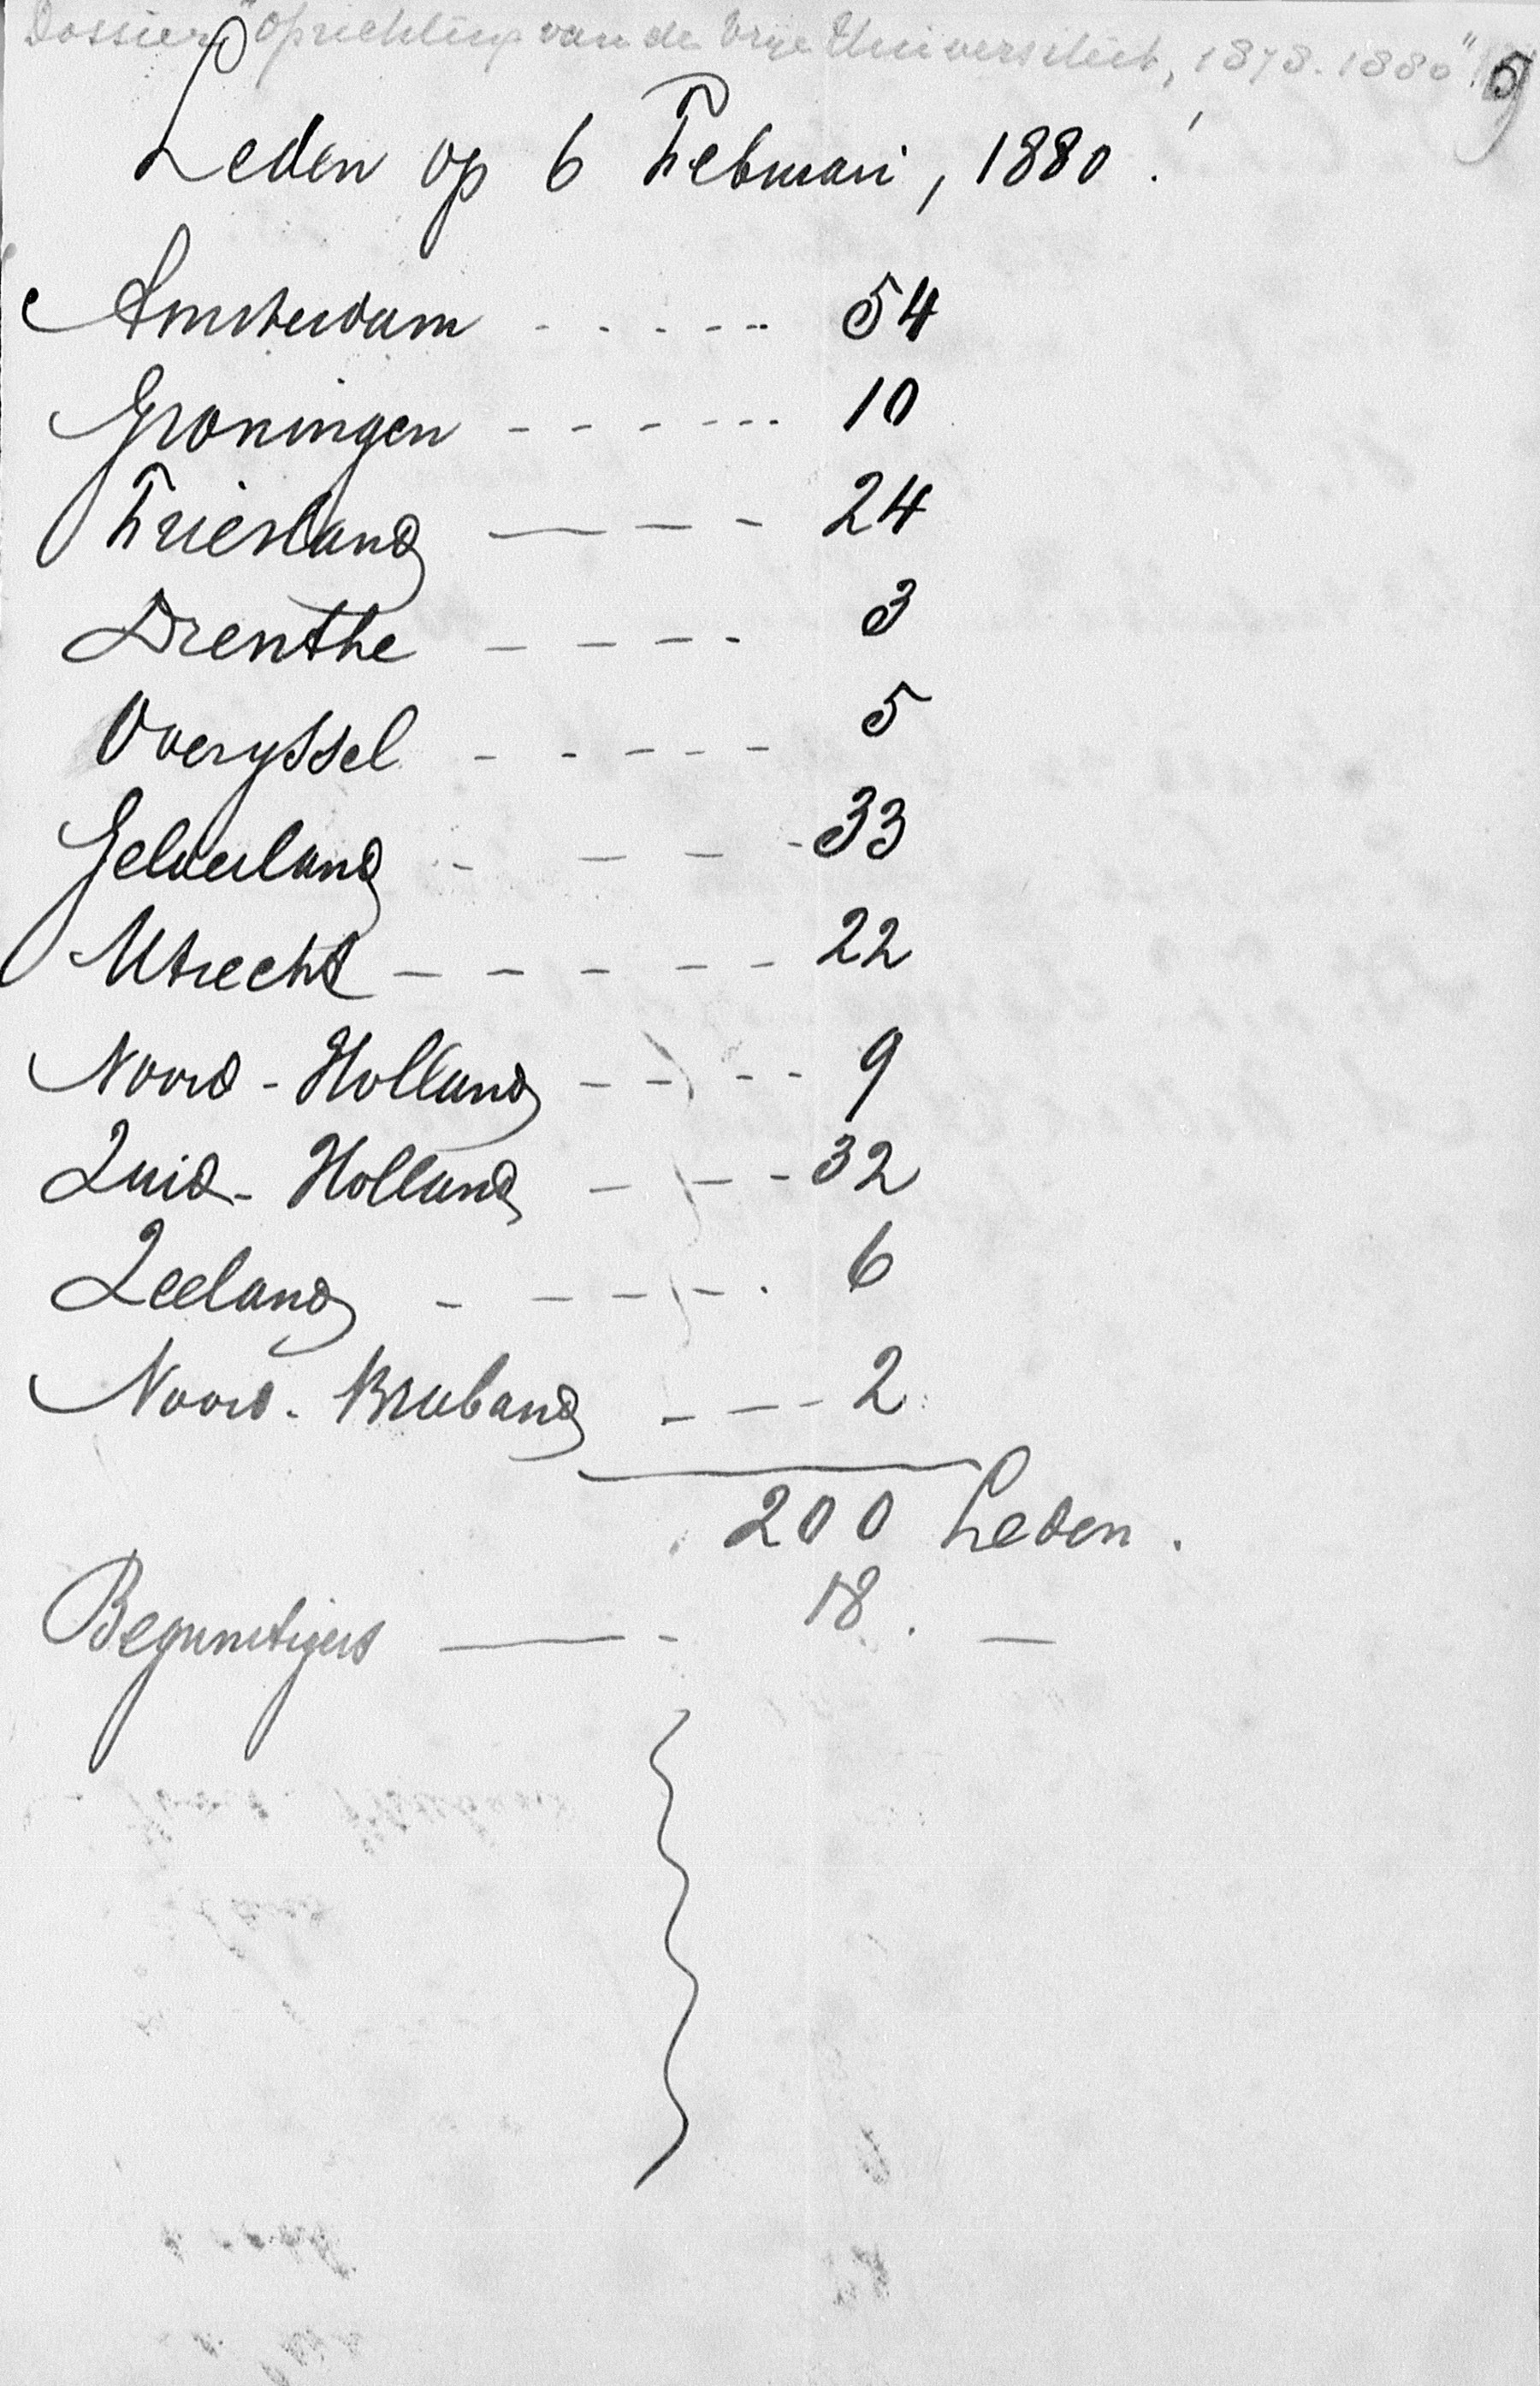 Dossier "Oprichting van de Vrije Universiteit, 1878-1880"
Leden op 6 Februari, 1880.
Amsterdam - - - - - 54
Groningen - - - - - - 10
Friesland - - - 24
Drenthe - - - - 3
Overyssel - - - - - - 5
Gelderland - - - - 33
Utrecht - - - - - 22
Noord-Holland - - - - 9
Zuid-Holland - - - 32
Zeeland - - - - - 6
Noord-Braband - - - 2
200 Leden.
Begunstigers - - 18. -